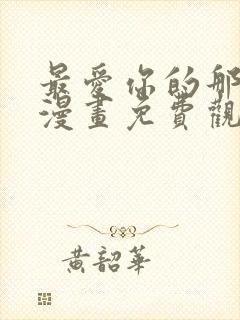 最愛你的那
漫畫免費觀
黃韶華